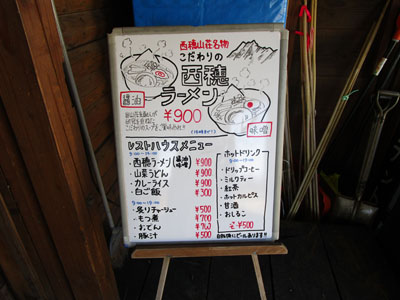 西穂山荘名物
こだわりの
西穂
ラーメン
醤油
¥900
味噌
レストハウスメニュー
・西穂ラーメン(醤油 味噌) ¥900
・山菜うどん ¥900
・カレーライス ¥900
・白ご飯 ¥300
・炙りチャーシュー ¥500
・もつ煮 ¥700
・おでん
・豚汁 ¥500
ホットドリンク
・ドリップコーヒー
・ミルクティー
・紅茶
・ホットカルピス
・甘酒
・おしるこ
¥500